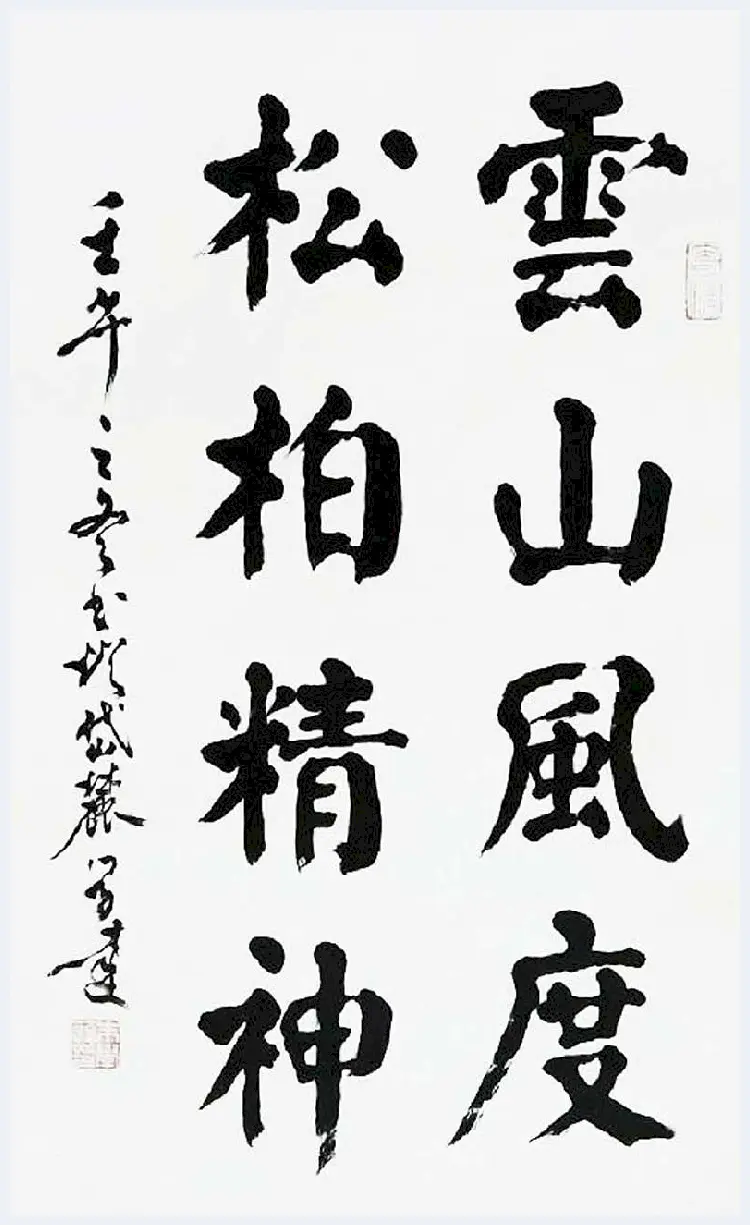 雲山風度
松柏精神
壬午之冬書於岱麓